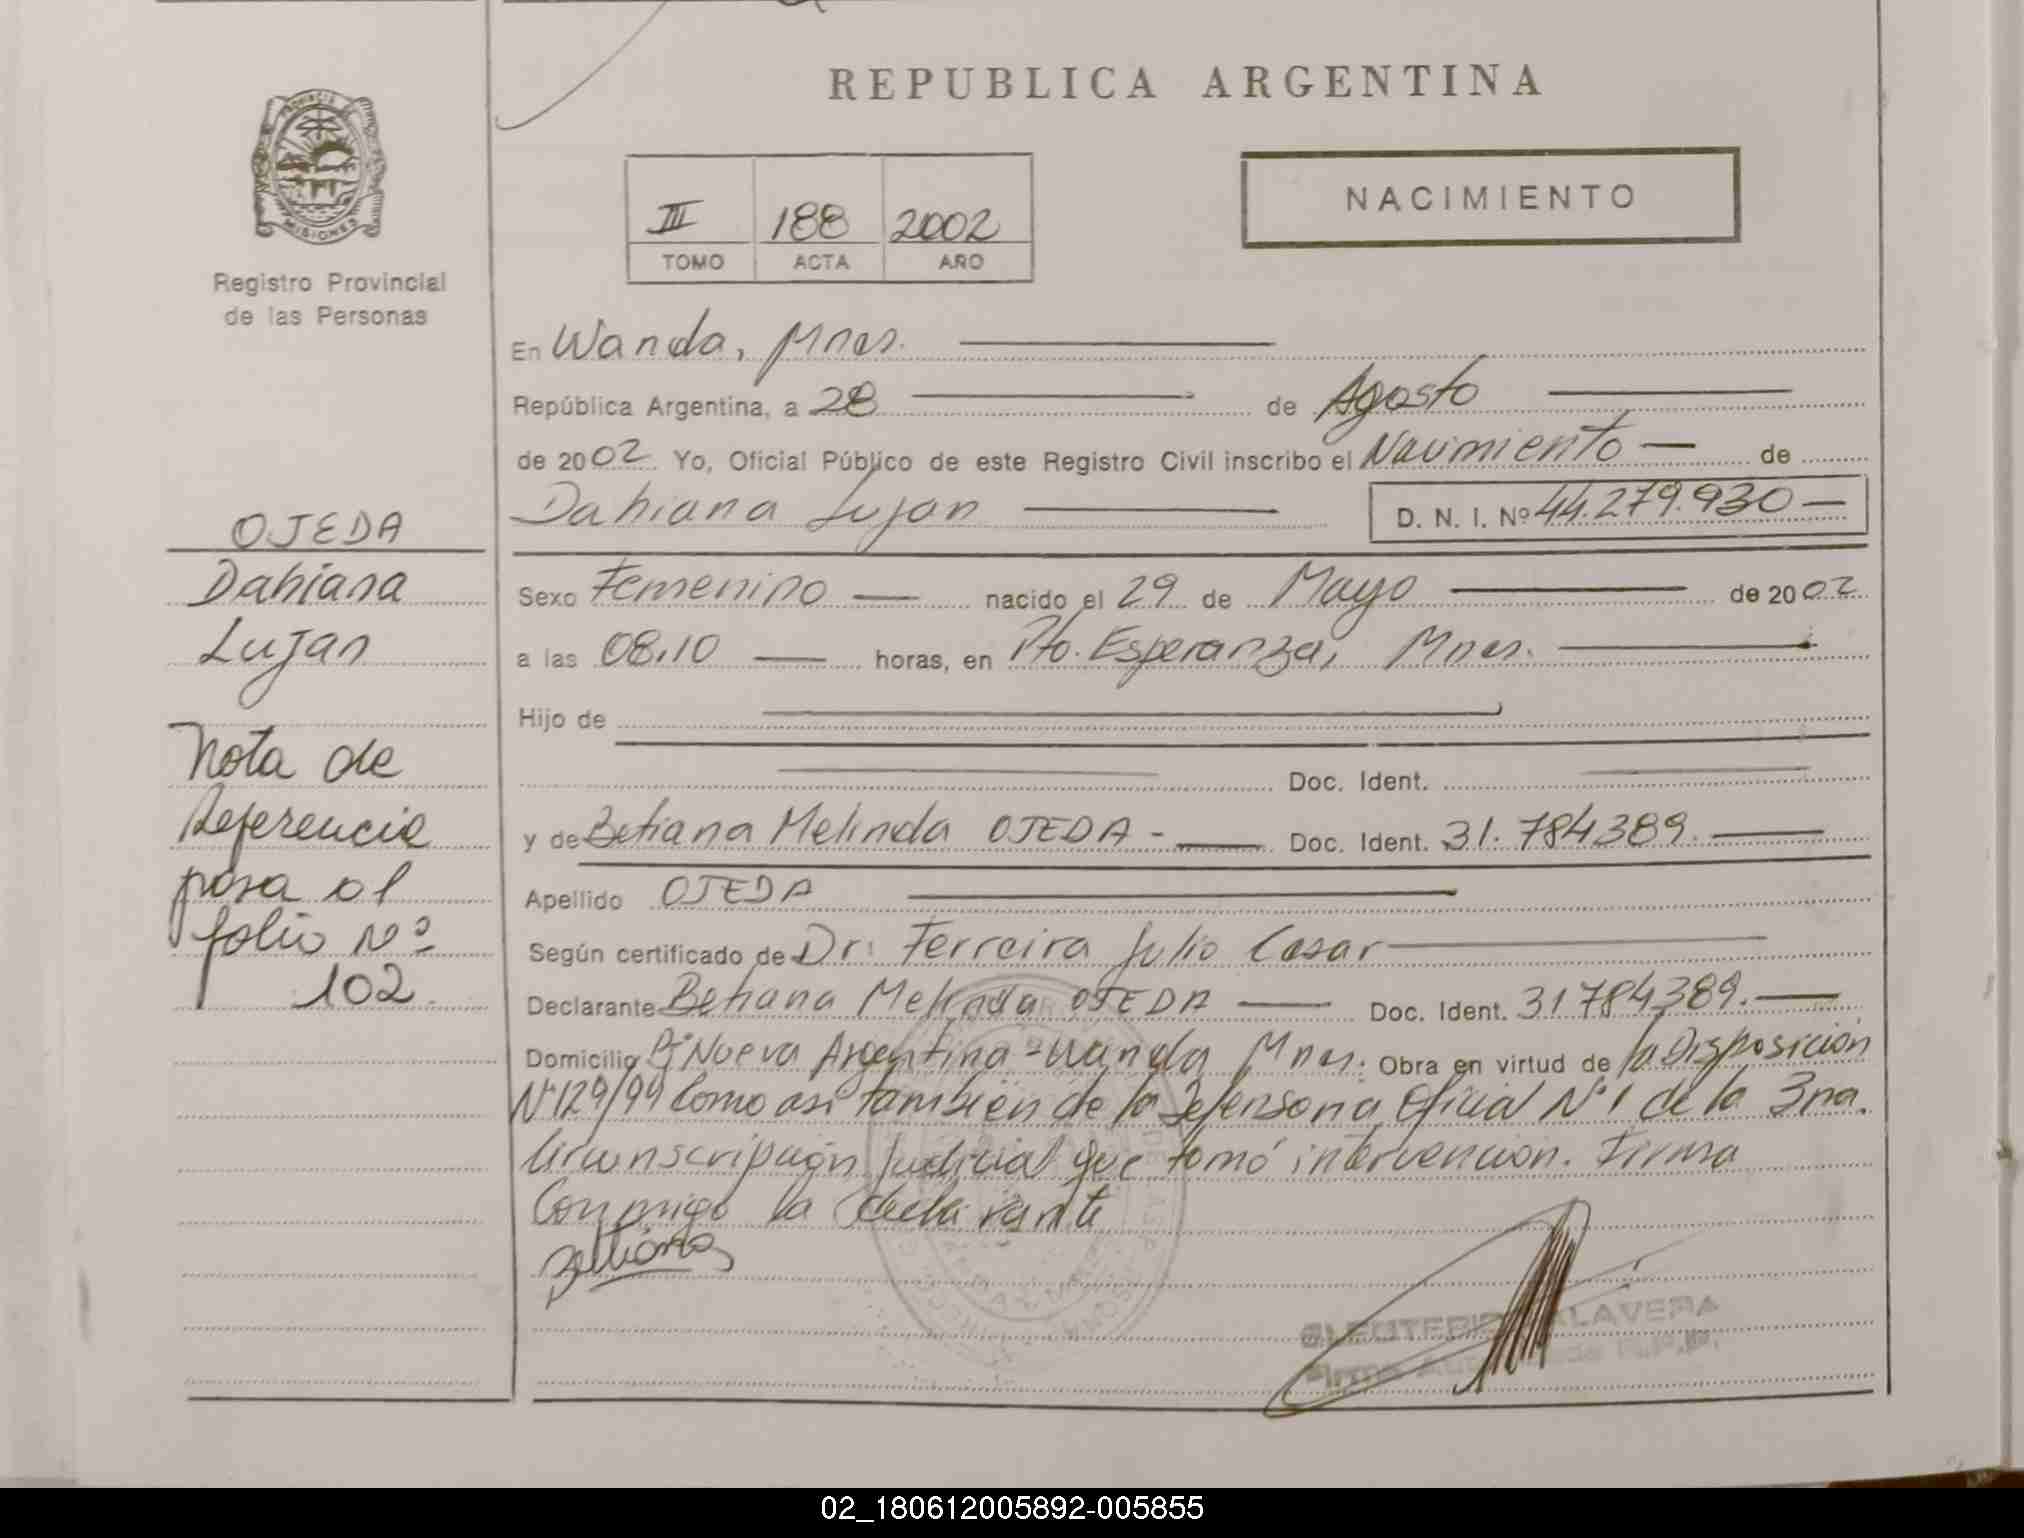 REPUBLICA ARGENTINA
NACIMIENTO
III 188 2002
TOMO ACTA AÑO
PROVINCIA DE MISIONES
Registro Provincial
de las Personas
OJEDA
Dahiana
Lujan
Nota de
Referencia
pasa al
folio Nº
102.
En Wanda, Mnes.
República Argentina, a 28 de Agosto
de 2002 Yo, Oficial Público de este Registro Civil inscribo el Nacimiento de
Dahiana Lujan D. N. I. Nº 44.279.930
Sexo Femenino nacido el 29 de Mayo de 2002
a las 08,10 horas, en Pto. Esperanza, Mnes.
Hijo de
Doc. Ident.
y de Betiana Melinda OJEDA - Doc. Ident. 31.784389.
Apellido OJEDA
Según certificado de Dr. Ferreira Julio Cesar
Declarante Betiana Melinda OJEDA Doc. Ident. 31784389.
Domicilio Bº Nueva Argentina - Wanda Mnes. Obra en virtud de la Disposición
Nº 129/99 Como asi también de la Defensoria Oficial Nº 1 de la 3ra.
Circunscripción Judicial que tomó intervención. Firma
Conmigo la declarante
ELEUTERIO TALAVERA
02_180612005892-005855